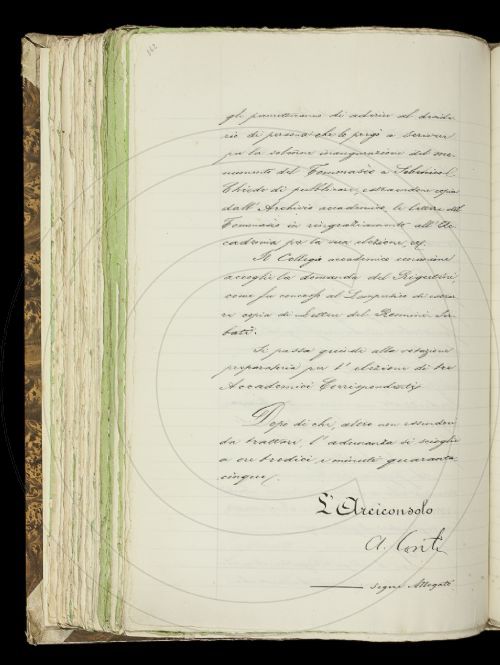 162
gli permettevano di aderire al deside-
rio di persona che lo pregò a scrivere
per la solenne inaugurazione del mo-
numento del Tommaseo a Sebenico.
Chiede di pubblicare, estraendone copia
dall'Archivio accademico, le lettere del
Tommaseo in ringraziamento all'Ac-
cademia per la sua elezione, ec.
Il Collegio accademico economico
accoglie la domanda del Rigutini,
come fu concesso al di estrar-
re copia di Lettere del Rosmini Ser-
bati.
Si passa quindi alla votazione
preparatoria per l'elezione di tre
Accademici Corrispondenti.
Dopo di che, altro non essendovi
da trattare, l'adunanza si scioglie
a ore tredici e minuti quaranta-
cinque.
L'Arciconsolo
A. Conti
Segue Allegato